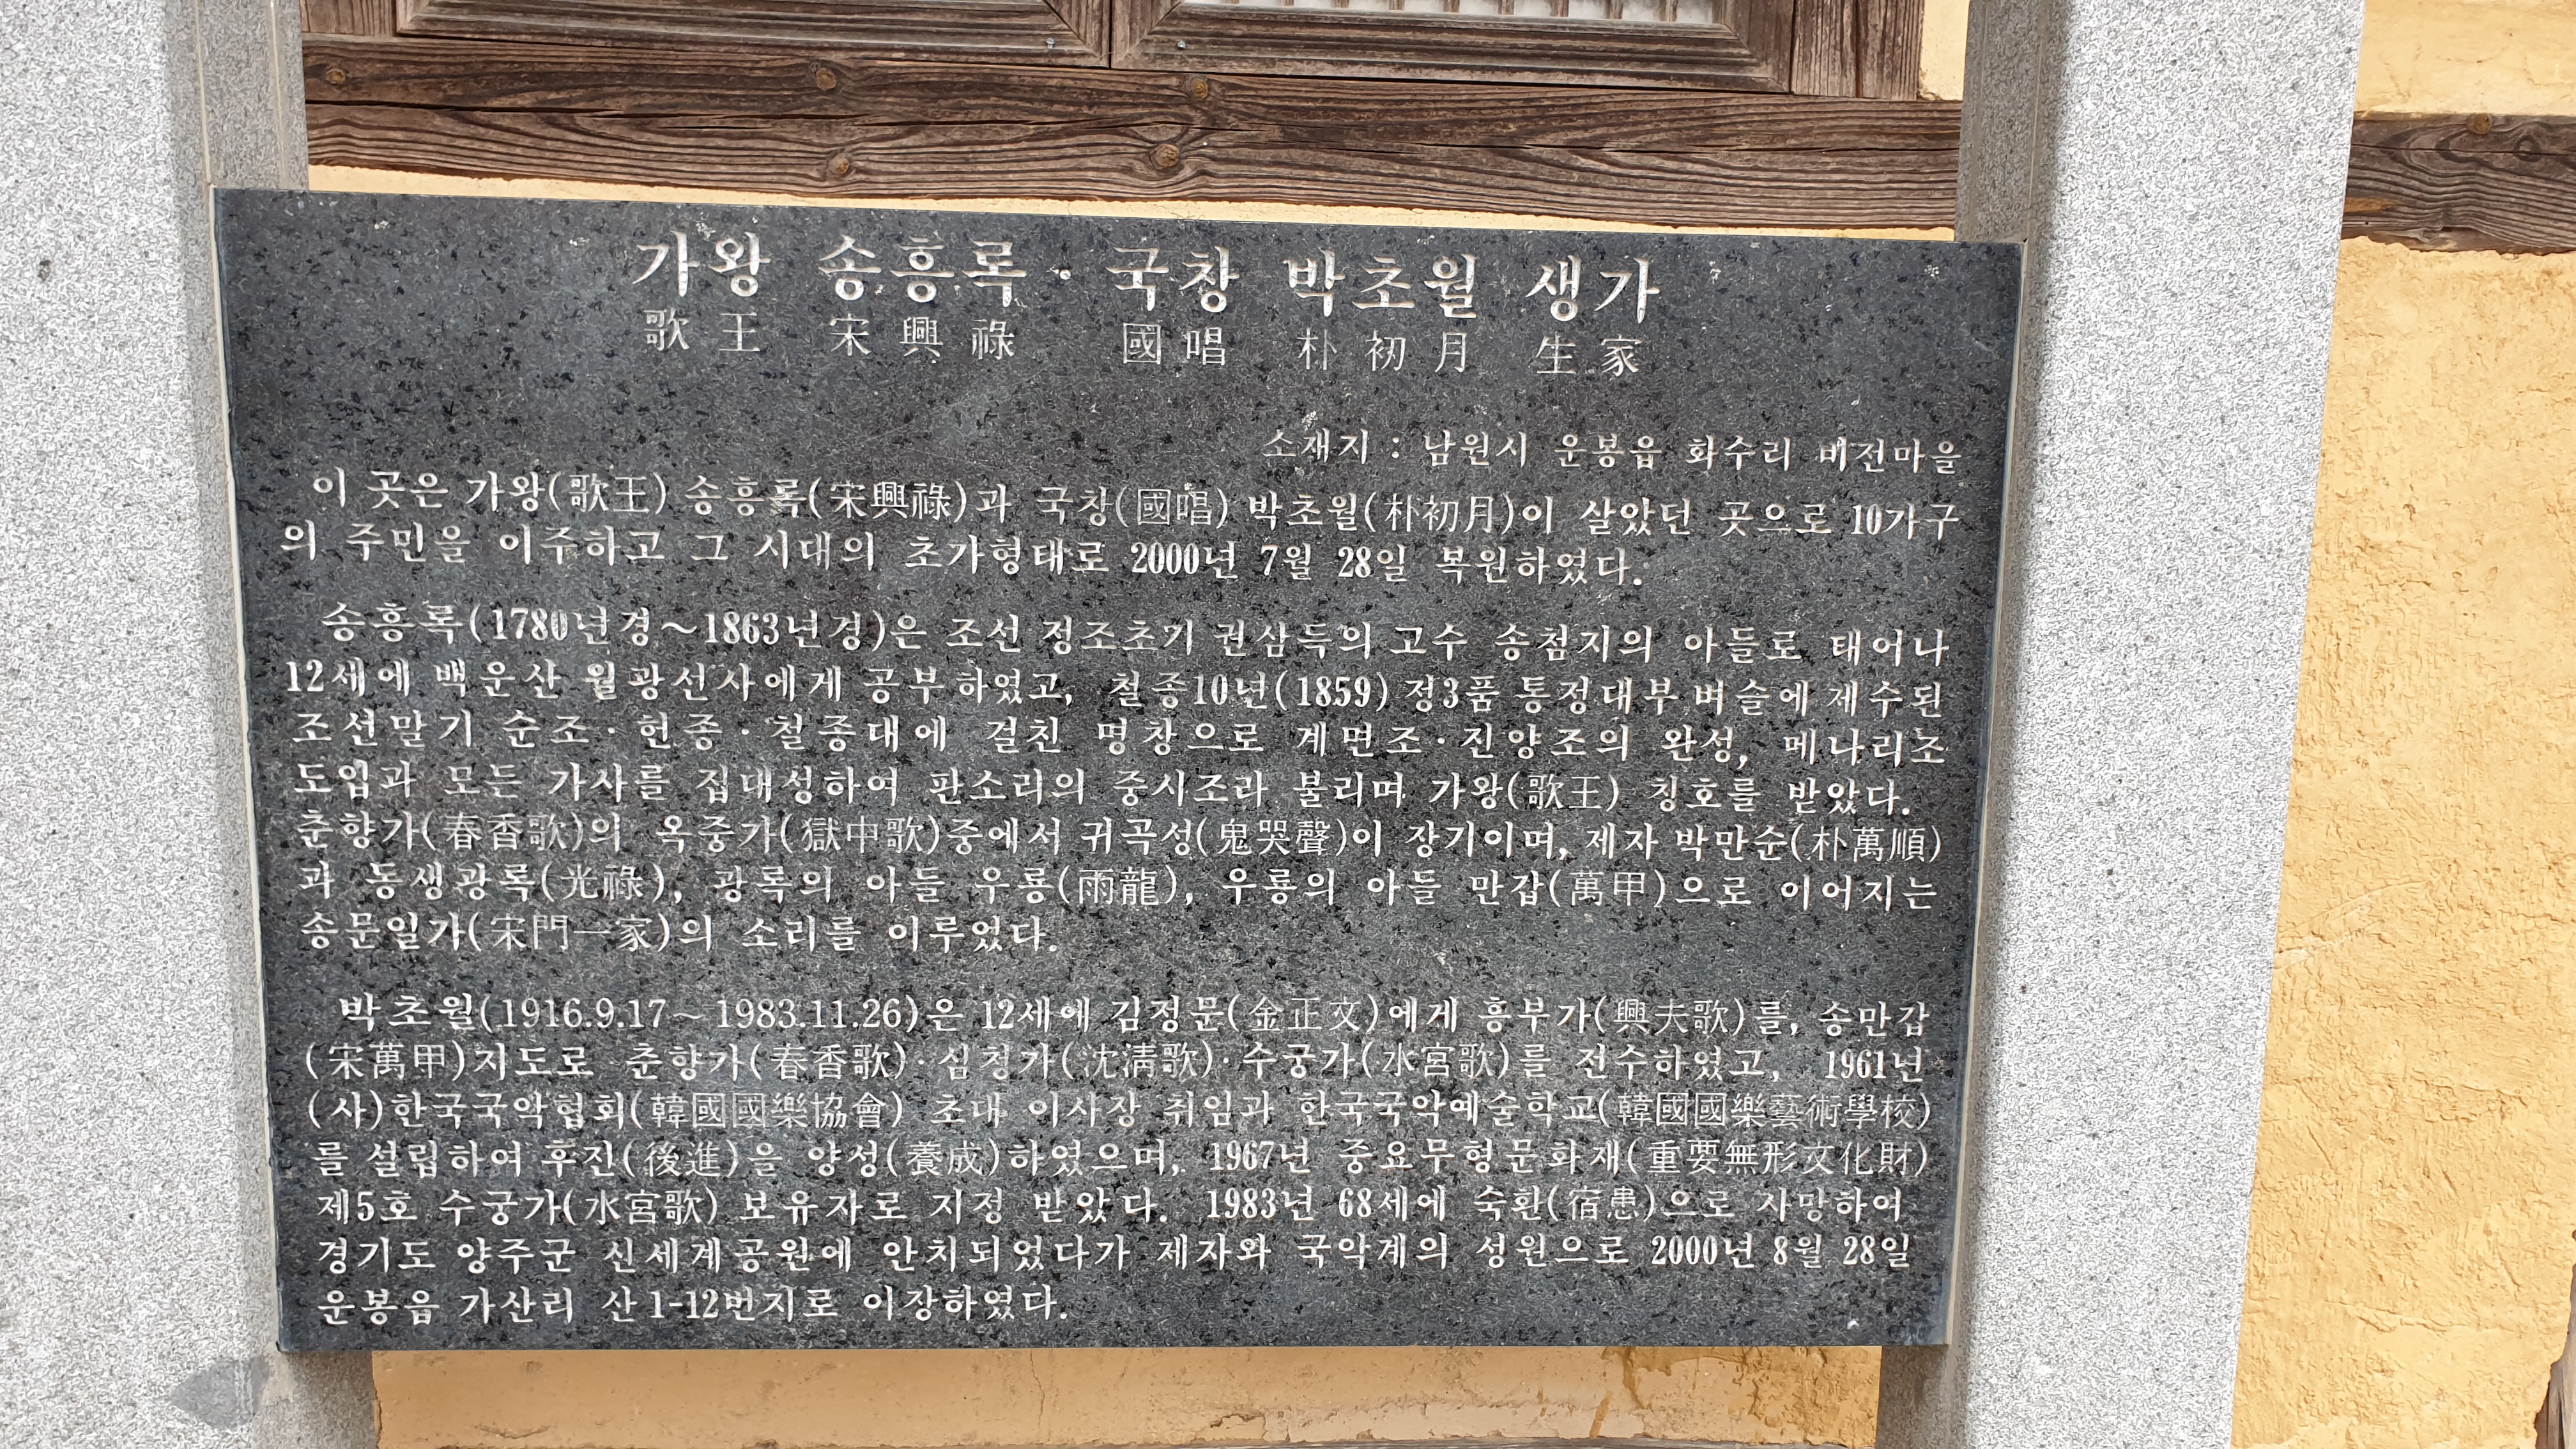 가왕 송흥록 · 국창 박초월 생가
歌王 宋興祿 國唱 朴初月 生家
소재지 : 남원시 운봉읍 화수리 비전마을
이 곳은 가왕(歌王) 송흥록(宋興祿)과 국창(國唱) 박초월(朴初月)이 살았던 곳으로 10가구
의 주민을 이주하고 그 시대의 초가형태로 2000년 7월 28일 복원하였다.
송흥록(1780년경~1863년경)은 조선 정조초기 권삼득의 고수 송첨지의 아들로 태어나
12세에 백운산 월광선사에게 공부하였고, 철종10년(1859) 정3품 통정대부 벼슬에 제수된
조선말기 순조·헌종·철종대에 걸친 명창으로 계면조·진양조의 완성, 메나리조
도입과 모든 가사를 집대성하여 판소리의 중시조라 불리며 가왕(歌王) 칭호를 받았다.
춘향가(春香歌)의 옥중가(獄中歌)중에서 귀곡성(鬼哭聲)이 장기이며, 제자 박만순(朴萬順)
과 동생광록(光祿), 광록의 아들 우룡(雨龍), 우룡의 아들 만갑(萬甲)으로 이어지는
송문일가(宋門一家)의 소리를 이루었다.
박초월(1916.9.17~ 1983.11.26)은 12세에 김정문(金正文)에게 흥부가(興夫歌)를, 송만갑
(宋萬甲)지도로 춘향가(春香歌)·심청가(沈淸歌)·수궁가(水宮歌)를 전수하였고, 1961년
(사)한국국악협회(韓國國樂協會) 초대 이사장 취임과 한국국악예술학교(韓國國樂藝術學校)
를 설립하여 후진(後進)을 양성(養成)하였으며, 1967년 중요무형문화재(重要無形文化財)
제5호 수궁가(水宮歌) 보유자로 지정 받았다. 1983년 68세에 숙환(宿患)으로 사망하여
경기도 양주군 신세계공원에 안치되었다가 제자와 국악계의 성원으로 2000년 8월 28일
운봉읍 가산리 산1-12번지로 이장하였다.